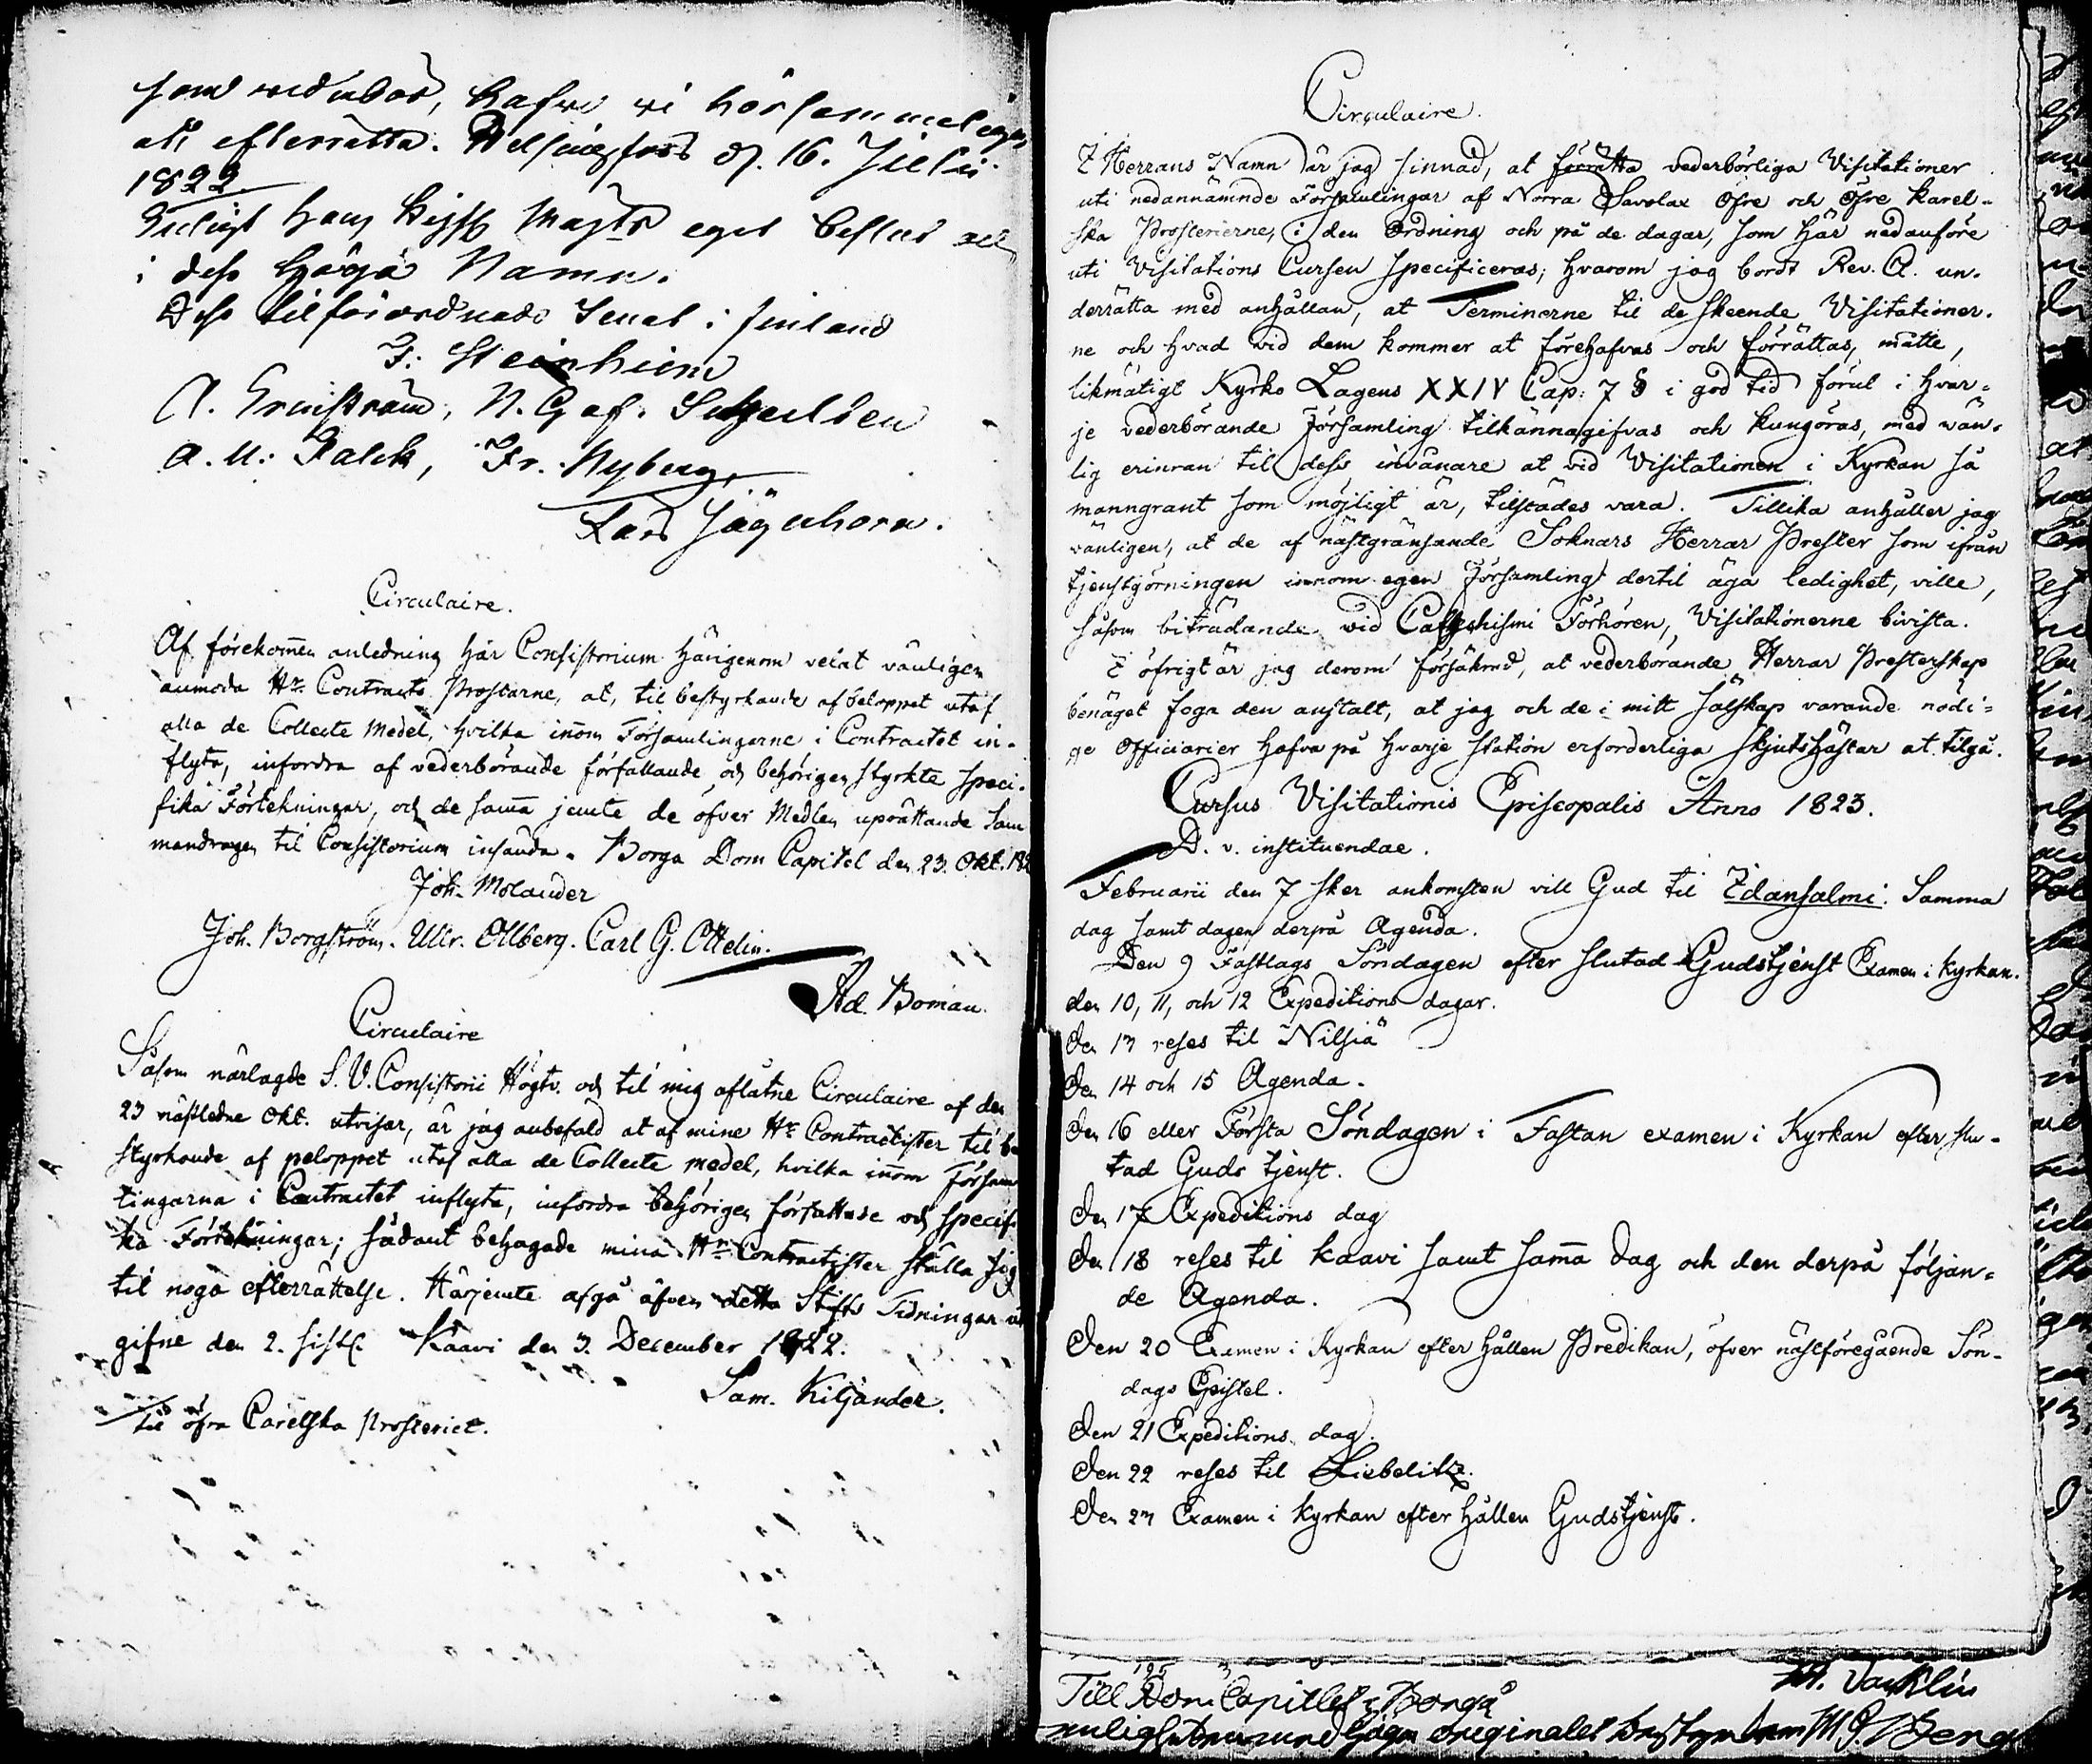 som wederbör, hafve vi hörsammeligen
att efterrätta. Helsingfors d. 16. Julii
1822
Enligt Hans Kejs. Majts eget beslut och
i dess Höga Namn.
Dess tilförordnade Senat i Finland
F: Steinheim
A. Ernström, N. G. af. Schultén
A. U: Falck, Fr. Nyberg
Lars Jägerhorn.
Circulaire.
Af förekom̄en anledning här Consistorium härigenom velat vänligen
anmoda Hr. Contracts Prostarne, at, til bestyrkande af beloppet utaf
alla de Collecte Medel, hvilka inom Församlingarne i Contractet in-
flyta, infordra af vederbörande författande och behörigen styrkte speci-
fika Förtekningar, och de sam̄a jemte de öfver Medlen uprättande Sam
mandragen til Consistorium insända. Borgå Dom Capitel den 23. Okt. 182
Joh. Molander
Joh. Borgström. Ulr. Ollberg. Carl G. Ottelin.
Ad. Boman.
Circulaire
Såsom närlagde S. V. Consistorii Högtv. och til mig aflåtne Circulaire af den
23 nästledne Okt. utvisar, är jag anbefald at af mine Hr Contractister til be
styrkande af peloppet utaf alla de Collecte medel, hvilka inom Försam
lingarna i Contractet inflyta, infordra behörigen författade och specifi
ka Förtekningar; sådant behagade mina Hrr Contractister ställa sig
til noga efterrättelse. Härjemte afgå äfven detta Stifts Tidningar ut
gifne den 2. sistl. Kaavi den 3. December 1822.
Sam. Kiljander.
Til öfra Carelska Prosteriet.
Circulaire.
I Herrans Namn är jag sinnad, at förrätta vederbörliga Visitationer
uti nedannämnde Församlingar af Norra Savolax Öfre och Öfre Karel-
ska Prosterierne, i den Ordning och på de dagar, som här nedanföre
uti Visitations Cursen specificeras; hvarom jag bordt Rev. A. un-
derrätta med anhållan, at Terminerne til de skeende Visitationer-
ne och hvad vid dem kommer at förehafvas och förrättas, måtte,
likmätigt Kyrko Lagens XXIV Cap: 7 § i god tid förut i hvar-
je vederbörande Församling tilkännagifvas och kungöras, med vän-
lig erinran til dess invånare at vid Visitationen i Kyrkan så
manngrant som möjligt är, tilstädes vara. Tillika anhåller jag
vänligen, at de af nästgränsande Soknars Herrar Prester som ifrån
tjenstgörningen innom egen Församling dertil äga ledighet, ville,
såsom biträdande vid Catechismi Förhören, Visitationerne bivista.
I öfrigt är jag derom försäkrad, at vederbörande Herrar Presterskap
benäget foga den anstalt, at jag och de i mitt sälskap varande nödi-
ge Officiarier hafva på hvarje station erforderliga skjutshästar at tilgå.
Cursus Visitationis Episcopalis Anno 1823.
D. v. instituendae.
Februarii den 7 sker ankomsten vill Gud til Idansalmi. Samma
dag samt dagen derpå Agenda.
Den 9 Fastlags Söndagen efter slutad Gudstjenst Examen i Kyrkan.
den 10, 11, och 12 Expeditions dagar.
den 13 reses til Nilsiä
den 14 och 15 Agenda.
den 16 eller Första Söndagen i Fastan examen i Kyrkan efter slu-
tad Guds tjenst.
den 17 Expeditions dag
den 18 reses til Kaavi samt sam̄a dag och den derpå följan-
de Agenda.
den 20 Examen i Kyrkan efter hållen Predikan, öfver nästföregående Sön-
dags Epistel.
den 21 Expeditions dag.
den 22 reses til Liebelitz.
den 23 Examen i Kyrkan efter hållen Gudstjenst.
Till Dom Capitlet i Borgå
originalet